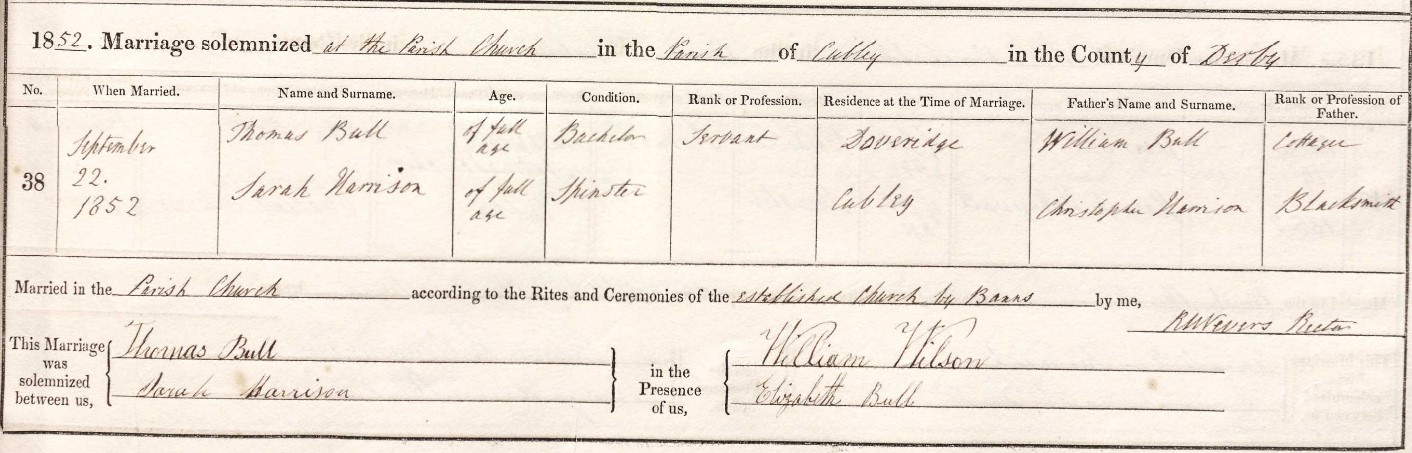 1852. Marriage solemnized at the Parish Church in the Parish of Cubley in the County of Derby
No. When Married. Name and Surname. Age. Condition. Rank or Profession. Residence at the Time of Marriage. Father's Name and Surname. Rank or Profession of Father.
38 September 22. 1852
Thomas Bull of full age Bachelor Servant Doveridge William Bull Cottager
Sarah Harrison of full age Spinster Cubley Christopher Harrison Blacksmith
Married in the Parish Church according to the Rites and Ceremonies of the established Church by Banns by me,
Rector
This Marriage was solemnized between us,
Thomas Bull
Sarah Harrison
in the Presence of us,
William Wilson
Elizabeth Bull